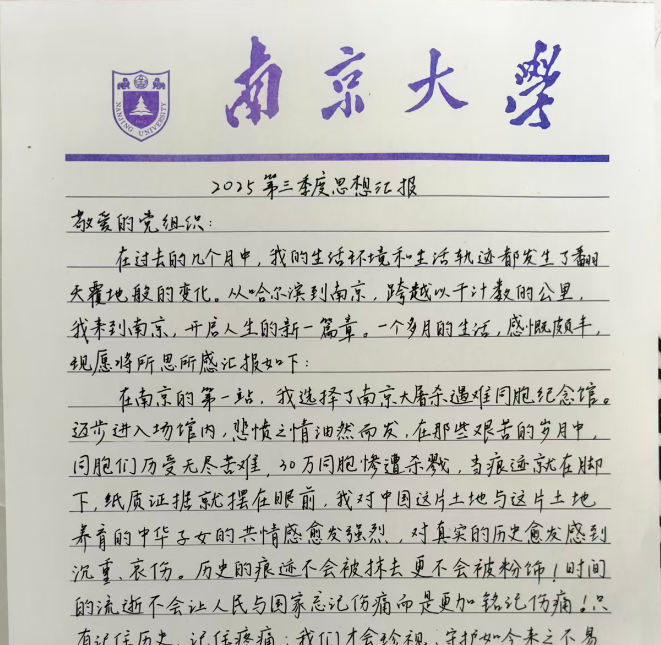 南京大学
NANJING UNIVERSITY
2025第三季度思想汇报
敬爱的党组织：
在过去的几个月中，我的生活环境和生活轨迹都发生了翻
天覆地般的变化。从哈尔滨到南京，跨越以千计数的公里，
我来到南京，开启人生的新一篇章。一个多月的生活，感慨颇丰，
现愿将所思所感汇报如下：
在南京的第一站，我选择了南京大屠杀遇难同胞纪念馆。
迈步进入场馆内，悲愤之情油然而发，在那些艰苦的岁月中，
同胞们历受无尽苦难，30万同胞惨遭杀戮，当痕迹就在脚
下，纸质证据就摆在眼前，我对中国这片土地与这片土地
养育的中华子女的共情感愈发强烈，对真实的历史愈发感到
沉重、哀伤。历史的痕迹不会被抹去更不会被粉饰！时间
的流逝不会让人民与国家忘记伤痛而是更加铭记伤痛！只
有记住历史，记住疼痛；我们才会珍视、守护如今来之不易